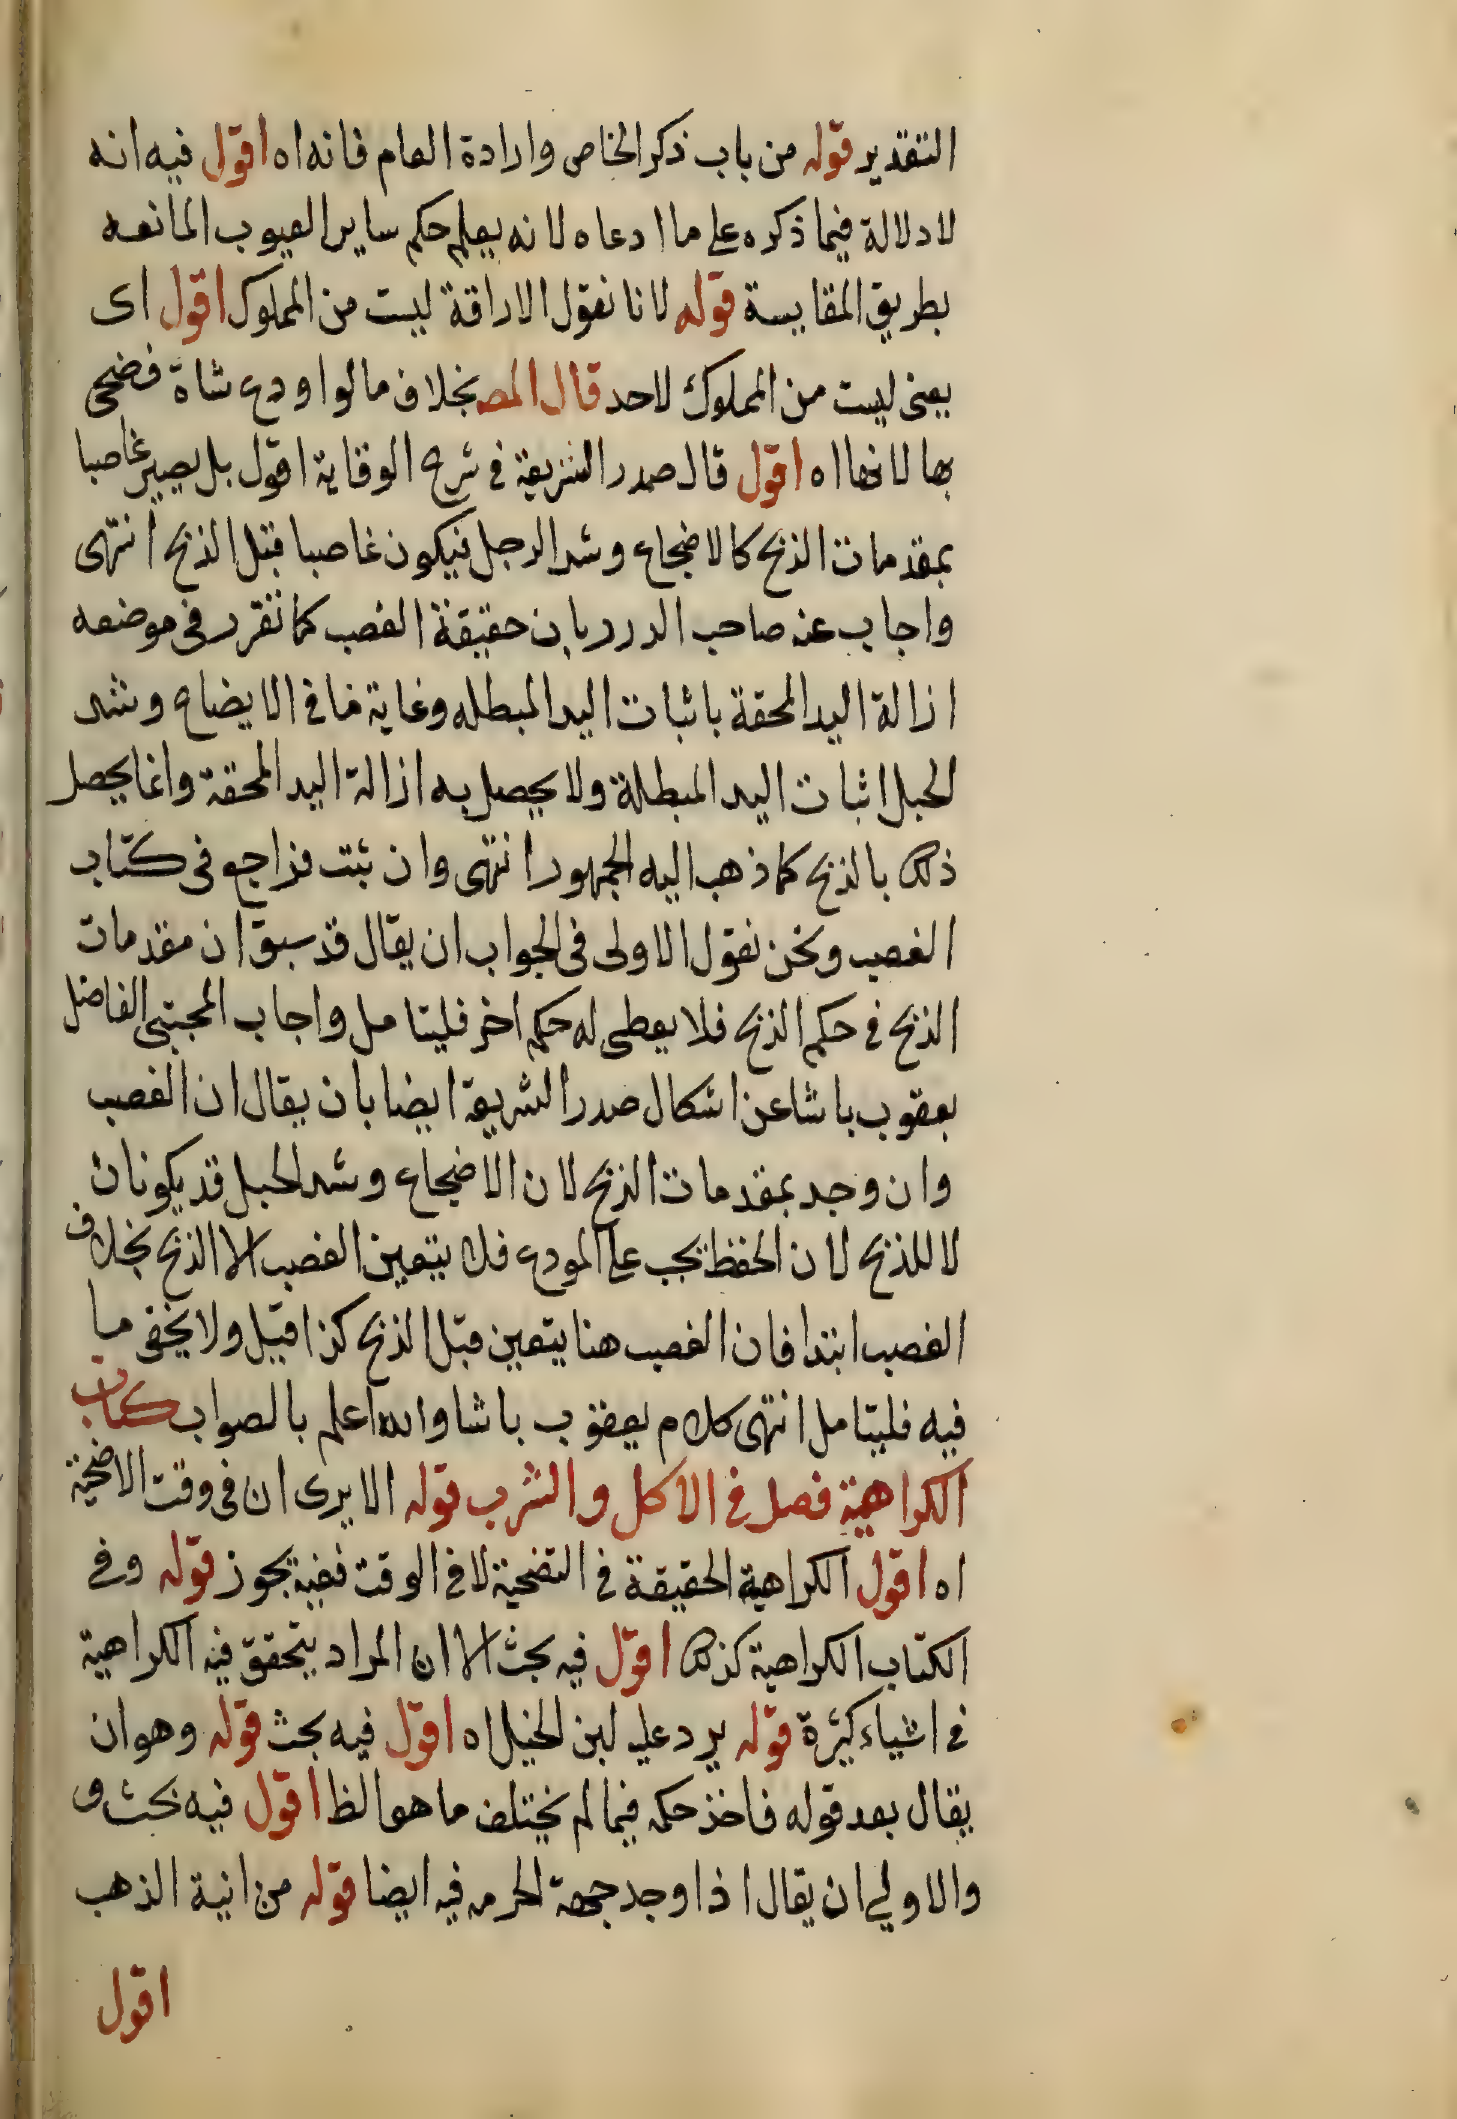 التقدير قوله من باب ذكر الخاص وارادة العام فانه اه اقول فيه انه
لا دلالة فيما ذكره على ما ادعاه لانه يعلم حكم ساير العيوب المانعه
بطريق المقايسة قوله لانا نقول الاراقة ليست من المملوك اقول اى
يعنى ليست من المملوك لاحد قال المص بخلاف ما لو اودع شاة فضحى
بها لانها اه اقول قال صدر الشريعة في شرح الوقاية اقول بل يصير غاصبا
بمقدمات الذبح كالاضجاع وشد الرجل فيكون غاصبا قبل الذبح انتهى
واجاب عنه صاحب الدرر بان حقيقة الغصب كما تقرر فى موضعه
ازالة اليد المحقة باثبات اليد المبطله وغاية ما فى الايضاع وشد
الحبل اثبات اليد المبطلة ولا يحصل به ازالة اليد المحقة وانما يحصل
ذلك بالذبح كما ذهب اليه الجمهور انتهى وان شئت فراجع فى كتاب
الغصب ونحن نقول الاولى فى الجواب ان يقال قد سبق ان مقدمات
الذبح في حكم الذبح فلا يعطى له حكم اخر فليتامل واجاب المجتبى الفاضل
يعقوب باشا عن اشكال صدر الشريعة ايضا بان يقال ان الغصب
وان وجد بمقدمات الذبح لان الاضجاع وشد الحبل قد يكونان
لا للذبح لان الحفظ يجب على المودع فلا يتعين الغصب الا الذبح بخلاف
الغصب ابتدا فان الغصب هنا يتعين قبل الذبح كذا قيل ولا يخفى ما
فيه فليتامل انتهى كلام يعقوب باشا والله اعلم بالصواب كتاب
الكراهية فصل في الاكل والشرب قوله الا يرى ان فى وقت الاضحية
اه اقول الكراهية الحقيقة في التضحية لا في الوقت ففيه تجوز قوله وفي
الكتاب الكراهية كذلك اقول فيه بحث الا ان المراد يتحقق فيه الكراهية
في اشياء كثيرة قوله يرد عليه لبن الخيل اه اقول فيه بحث قوله وهو ان
يقال بعد قوله فاخذ حكمه فيما لم يختلف ما هو الظ اقول فيه بحث و
والاولي ان يقال اذا وجد جهة الحرمه فيه ايضا قوله من انية الذهب
اقول